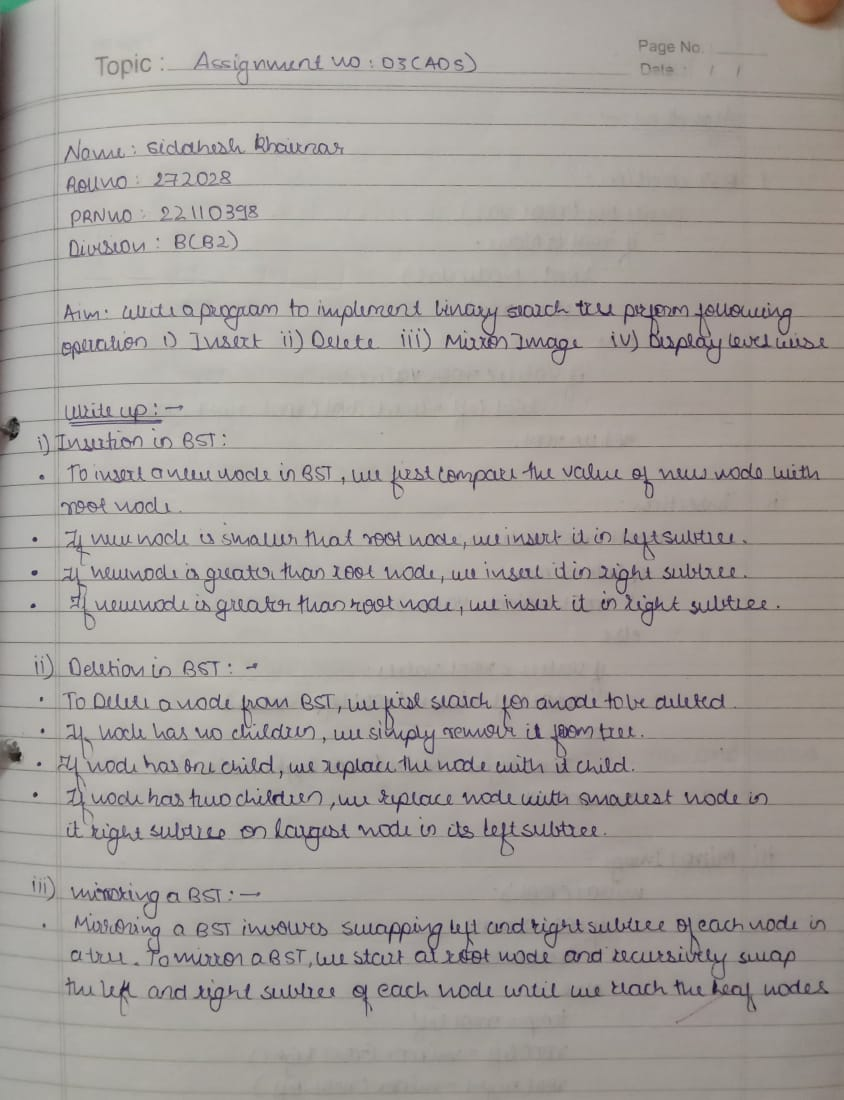 Page No.
Topic : Assignment no : 03(ADS)
Date : / /
Name : Siddhesh Khairnar
Roll no : 272028
PRN no : 22110398
Division : B(B2)
Aim: Write a program to implement binary search tree perform following
operation i) Insert ii) Delete iii) Mirror Image iv) Display level wise
Write up : →
i) Insertion in BST :
• To insert a new node in BST, we first compare the value of new node with
root node.
• If new node is smaller that root node, we insert it in left subtree.
• If new node is greater than root node, we insert it in right subtree.
• If new node is greater than root node, we insert it in right subtree.
ii) Deletion in BST : →
• To Delete a node from BST, we first search for a node to be deleted.
• If node has no children, we simply remove it from tree.
• If node has one child, we replace the node with it child.
• If node has two children, we replace node with smallest node in
it right subtree or largest node in its left subtree.
iii) Mirroring a BST : →
• Mirroring a BST involves swapping left and right subtree of each node in
a tree. To mirror a BST, we start at root node and recursively swap
the left and right subtree of each node until we reach the leaf nodes